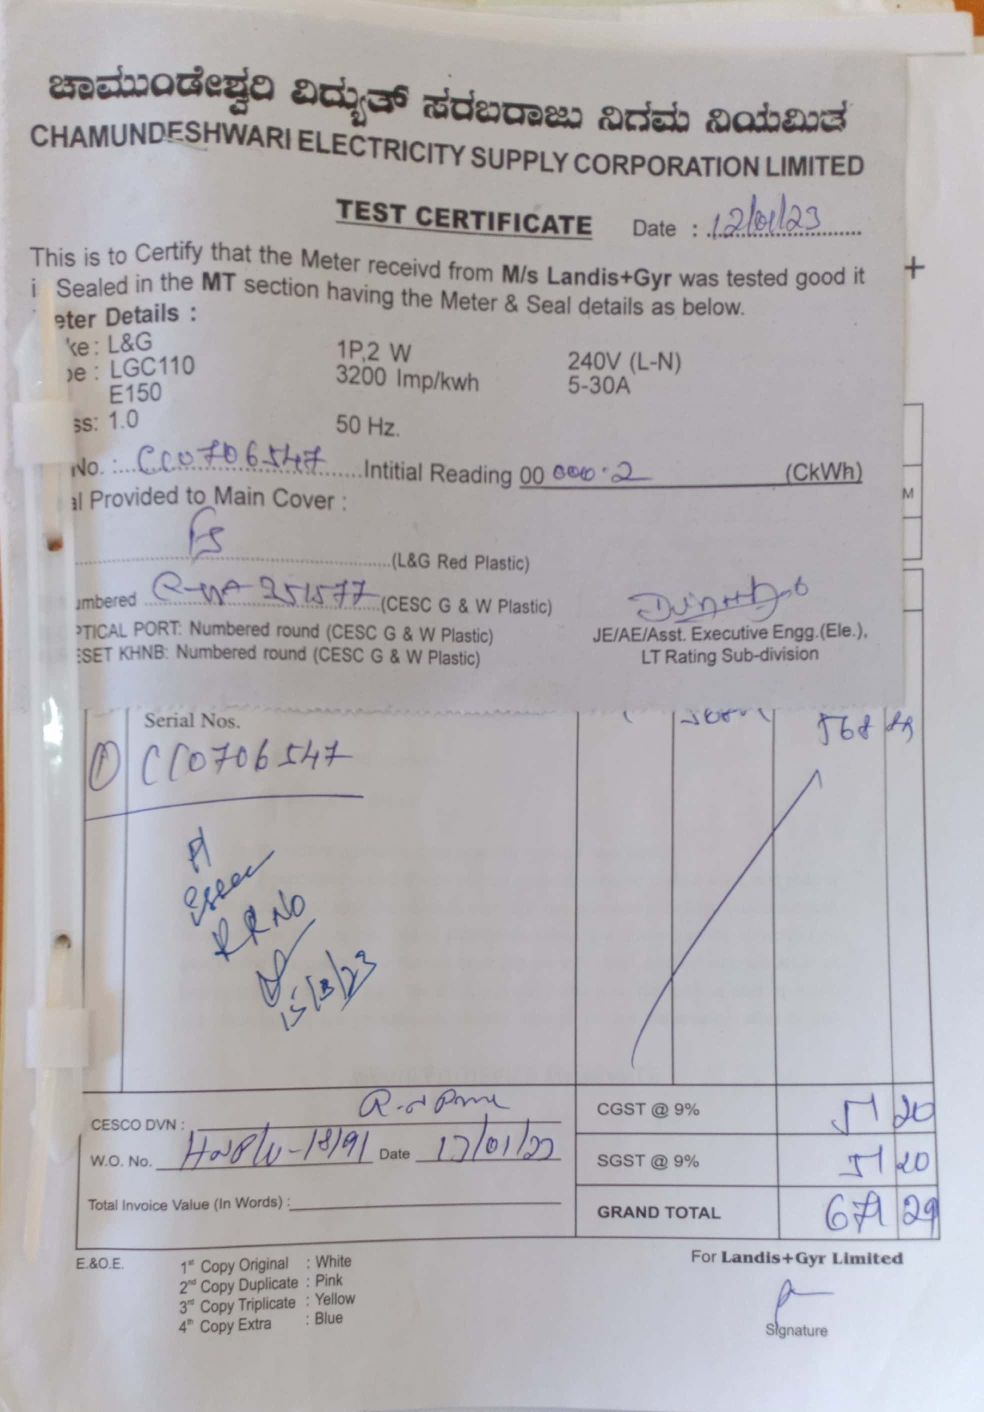 ಚಾಮುಂಡೇಶ್ವರಿ ವಿದ್ಯುತ್ ಸರಬರಾಜು ನಿಗಮ ನಿಯಮಿತ
CHAMUNDESHWARI ELECTRICITY SUPPLY CORPORATION LIMITED
TEST CERTIFICATE Date : 12/01/23
This is to Certify that the Meter receivd from M/s Landis+Gyr was tested good it
i Sealed in the MT section having the Meter & Seal details as below.
eter Details :
ke : L&G 1P,2 W 240V (L-N)
pe : LGC110 3200 Imp/kwh 5-30A
E150
ss: 1.0 50 Hz.
No. : CC0706547 Intitial Reading 00 000.2 (CkWh)
al Provided to Main Cover :
(L&G Red Plastic)
umbered 251577 (CESC G & W Plastic)
PTICAL PORT: Numbered round (CESC G & W Plastic)
ESET KHNB: Numbered round (CESC G & W Plastic)
JE/AE/Asst. Executive Engg.(Ele.),
LT Rating Sub-division
M
Serial Nos. 568
1 CC0706547
RRNO
15/3/23
CESCO DVN :
W.O. No. 18/91 Date
Total Invoice Value (In Words) :
CGST @ 9% 51 20
SGST @ 9% 51 20
GRAND TOTAL 671 29
E.&O.E.
1st Copy Original : White
2nd Copy Duplicate : Pink
3rd Copy Triplicate : Yellow
4th Copy Extra : Blue
For Landis+Gyr Limited
Signature